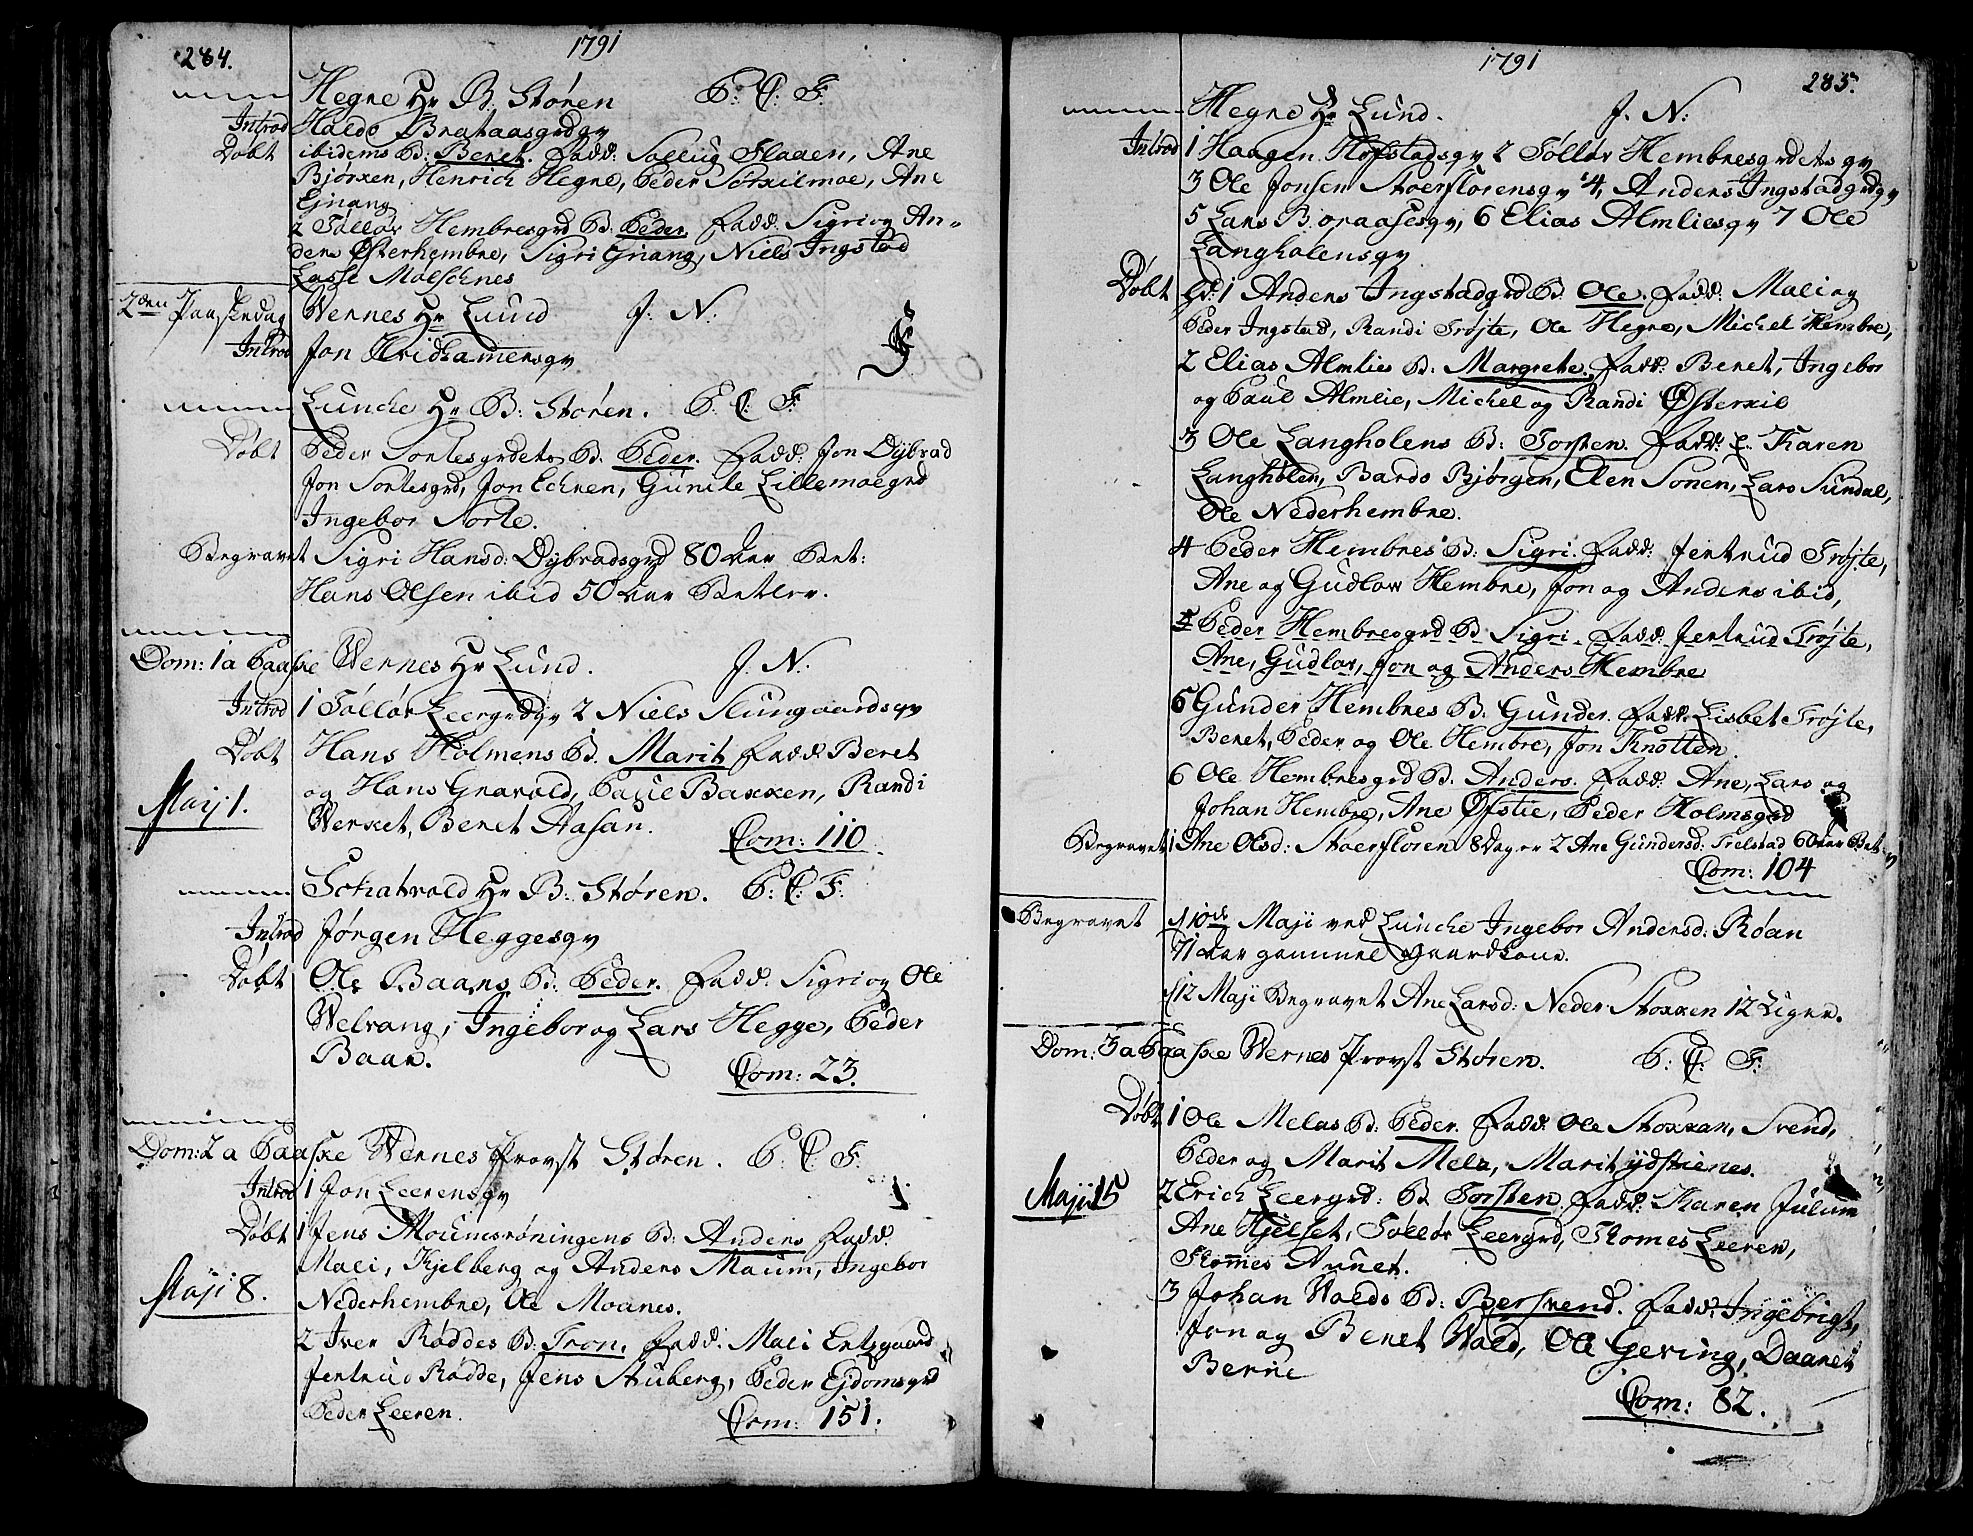 284.
1791
Hegne Hr B: Støren P: C: F:
Introd Haldo Brataasgrdqv
Døbt ibidems B: Beret. Fadd: Sollug Flaaen, Ane
Bjørxen, Henrich Hegne, Peder Sørxilmoe, Ane
Gjnang
2 Tølløv Hembresgrd B: Peder. Fadd: Sigri og An-
ders Østerhembre, Sigri Gnang, Niels Ingstad
Lasse Moeschnes
2den Paaskedag Wernes Hr Lund J: N:
Introd Jon Hvidhamersqv
Lunche Hr B: Støren. P: C: F:
Døbt Peder Sortesgrdets B: Peder. Fadd: Jon Dybvad
Jon Sortesgrd, Jon Echren, Gunile Lillemoegrd
Ingebor Sorte.
Begravet Sigri Hansd: Dybvadsgrd 80 aar Bet:
Hans Olsen ibid 50 aar Betler.
Dom: 1 a Paaske Wernes Hr Lund. J. N:
Introd 1 Tølløv Leergrdqv 2 Niels Slungaardsqv
Døbt Hans Holmens B. Marit Fadd: Beret
og Hans Gravald, Paul Baxxen, Randi
Maij 1. Werxet, Beret Aasan.
Com: 110
Schatvold Hr B: Støren. P: C: F:
Introd Jørgen Heggesqv
Døbt Ole Baans B: Peder. Fadd: Sigri og Ole
Welvang, Ingebor og Lars Hegge, Peder
Baan.
Com: 23.
Dom: 2 a Paaske Wernes Provst Støren. P: C: F:
Introd 1 Jon Leerensqv
Døbt 1 Jens Moumsrøningens B: Anders Fadd:
Mali, Kjelberg og Anders Maum, Ingebor
Maji 8. Nederhembre, Ole Moanes.
2 Iver Røddes B: Tron. Fadd: Mali Ertsgaard
Jertrud Rødde, Jens Stuberg, Peder Ejdomsgrd
Peder Leeren.
Com: 151.
1791
285.
Hegne Hr Lund. J. N:
Introd 1 Haagen Hofstadsqv 2 Tølløv Hembresgrdets qv
3 Ole Jonsen Stoerflorensqv 4, Anders Ingstadgrdqv
5 Lars Boraasesqv, 6 Elias Almliesqv 7 Ole
Langholensqv
Døbt 1 Anders Ingstadgrd B: Ole. Fadd: Mali og
Peder Ingstad, Randi Trøjte, Ole Hegre, Michel Hembre,
2 Elias Almlies B: Margrete. Fadd: Beret, Ingebor
og Paul Almlie, Michel og Randi Østerxil
3 Ole Langholens B: Torsten. Fadd: Karen
Langholen, Bardo Bjørgen, Elen Sonen, Lars Sundal,
Ole Nederhembre.
4 Peder Hembres B: Sigri. Fadd: Jertrud Trøjte,
Ane og Gudlov Hembre, Jon og Anders ibid,
5 Peder Hembresgrd B. Sigri. Fadd: Jertrud Trøjte,
Ane, Gudlov, Jon og Anders Hembre
5 Gunder Hembres B. Gunder. Fadd: Lisbet Trøjte,
Beret, Peder og Ole Hembre, Jon Knotten
6 Ole Hembresgrd B. Anders. Fadd: Ane, Lars og
Johan Hembre, Ane Øfstie, Peder Holmsgrd
Begravet 1 Ane Olsd: Stoerfloren 8 Dager 2 Ane Gundersd: Trelstad 60 aar Bet
Com: 104
Begravet d 10de Maji ved Lunche Ingebor Andersd: Røan
71 aar gammel gaardkone.
d 12 Maji Begravet Ane Larsd: Neder Stoxxen 12 Uger.
Dom: 3 a Paaske Wernes Provst Støren. P: C: F:
Døbt 1 Ole Melas B: Peder. Fadd: Ole Stoxxan, Svend,
Peder og Marit Mela, Marit ydstienes.
Maji 15 2 Erich Leergrd: B Torsten. Fadd: Karen Julum
Ane Hjelset, Tølløv Leergrd, Thomes Leeren,
Thomes Aunet.
3 Johan Walds B: Bersvend. Fadd: Ingebrigt,
Jon og Beret Wald, Ole Geving, Daaret
Berne
Com: 82.